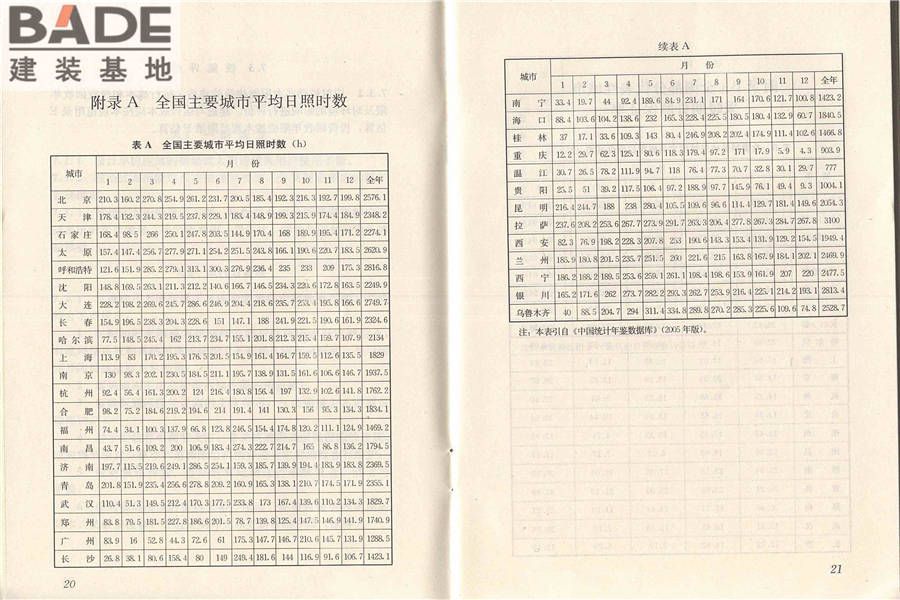 BADE
建装基地
附录 A 全国主要城市平均日照时数
表 A 全国主要城市平均日照时数（h）
城市 月 份
1 2 3 4 5 6 7 8 9 10 11 12 全年
北 京 210.3 160.2 270.8 254.9 261.2 231.7 200.5 185.4 192.3 216.3 192.7 199.8 2576.1
天 津 178.4 132.3 244.3 219.5 237.8 229.1 183.4 148.9 199.3 215.9 174.4 184.9 2348.2
石 家 庄 168.4 98.5 266 250.1 247.8 203.5 144.9 170.4 168 189.9 195.4 171.2 2274.1
太 原 157.4 147.4 256.7 277.9 271.1 254.2 251.5 243.8 166.1 190.6 220.7 183.5 2620.9
呼和浩特 121.6 151.9 285.2 279.1 313.1 300.3 276.9 236.4 235 233 209 175.3 2816.8
沈 阳 148.8 169.5 263.1 211.3 212.2 140.6 166.7 146.5 234.3 220.6 172.8 163.5 2249.9
大 连 228.2 198.2 269.6 245.7 286.6 246.9 204.4 218.6 235.7 253.4 195.8 166.6 2749.7
长 春 154.9 196.5 238.3 204.3 228.6 151 147.1 188 241.9 221.5 190.6 161.9 2324.6
哈 尔 滨 77.5 148.5 245.4 162 213.7 234.7 155.1 201.8 212.3 215.4 159.7 107.9 2134
上 海 113.9 83 170.2 195.3 176.5 201.5 154.9 161.4 164.7 159.5 112.6 135.5 1829
南 京 130 98.3 202.1 230.5 184.5 211.1 195.7 138.9 131.5 161.6 106.6 146.7 1937.5
杭 州 92.4 56.4 161.3 200.2 124 216.4 180.8 156.4 197 132.9 102.6 141.8 1762.2
合 肥 98.2 75.2 184.6 219.2 194.6 214 191.4 141 130.3 156 95.3 134.3 1834.1
福 州 74.4 34.1 100.3 137.9 66.8 123.8 246.5 154.4 174.8 120.2 111.1 124.9 1469.2
南 昌 43.7 51.6 109.2 200 106.9 183.4 274.3 222.7 214.7 165 86.8 136.2 1794.5
济 南 197.7 115.5 219.6 249.1 286.5 254.1 139.3 185.7 139.9 194.4 183.9 183.8 2369.5
青 岛 201.8 151.9 235.4 256.6 278.8 209.2 160.9 165.3 138.1 210.7 174.5 171.9 2355.1
武 汉 110.4 51.3 149.5 212.4 170.3 177.5 233.8 173 167.4 139.6 110.2 134.3 1829.7
郑 州 83.8 79.5 181.5 227.8 186.6 201.5 78.7 139.8 125.4 147.5 146.9 141.9 1740.9
广 州 83.9 16 52.8 44.3 72.6 61 175.3 147.7 146.7 210.6 145.7 131.9 1288.5
长 沙 26.8 38.1 80.6 158.4 80 149 249.4 181.6 144 116.9 91.6 106.7 1423.1
20
续表 A
城市 月 份
1 2 3 4 5 6 7 8 9 10 11 12 全年
南 宁 33.4 19.7 44 92.4 189.6 84.9 231.1 171 164 170.6 121.7 100.8 1423.2
海 口 88.4 103.6 104.2 138.6 232 165.3 228.4 225.5 180.5 180.4 132.9 60.7 1840.5
桂 林 37 17.1 33.6 109.3 143 80.4 246.9 208.2 202.4 174.9 111.4 102.6 1466.8
重 庆 12.2 29.7 62.3 125.1 80.6 118.3 179.4 97.2 171 17.9 5.9 4.3 903.9
温 江 30.7 26.5 78.2 111.9 94.7 118 76.4 77.3 70.7 32.8 30.1 29.7 777
贵 阳 25.5 51 39.2 117.5 106.4 97.2 188.9 97.7 145.9 76.1 49.4 9.3 1004.1
昆 明 216.4 244.7 188 238 280.4 105.5 109.6 96.6 114.4 129.7 181.4 149.6 2054.3
拉 萨 237.6 208.2 253.6 267.7 273.9 291.7 263.3 206.4 277.8 267.3 284.7 267.8 3100
西 安 82.3 76.9 198.2 228.3 207.8 253 190.6 143.3 153.4 131.9 129.2 154.5 1949.4
兰 州 185.9 180.8 201.5 235.7 251.5 260 221.6 215 163.8 167.9 184.1 202.1 2469.9
西 宁 186.2 188.2 189.5 253.6 259.1 261.1 198.4 198.6 153.9 161.9 207 220 2477.5
银 川 165.2 171.6 262 273.7 282.2 293.3 262.7 253.9 216.4 225.1 214.2 193.1 2813.4
乌鲁木齐 40 88.5 204.7 294 311.4 334.8 289.8 270.2 285.3 225.6 109.6 74.8 2528.7
注：本表引自《中国统计年鉴数据库》（2005 年版）。
21